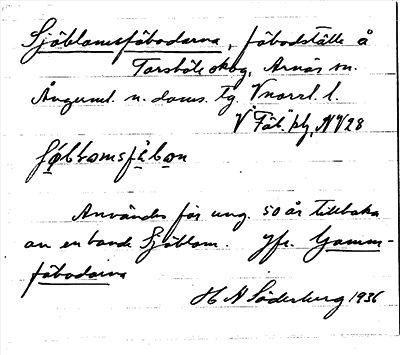 Sjöblomsfäbodarna, fäbodställe å
Torsböle skog, Arnäs sn.
Ångerml. n. doms. tg. Vnorrl. l.
V "Fäb." pl, NV28
Användes för ung. 50 år tillbaka
av en bonde Sjöblom. Jfr. Gamm-
fäbodarna
H N Söderberg 1936